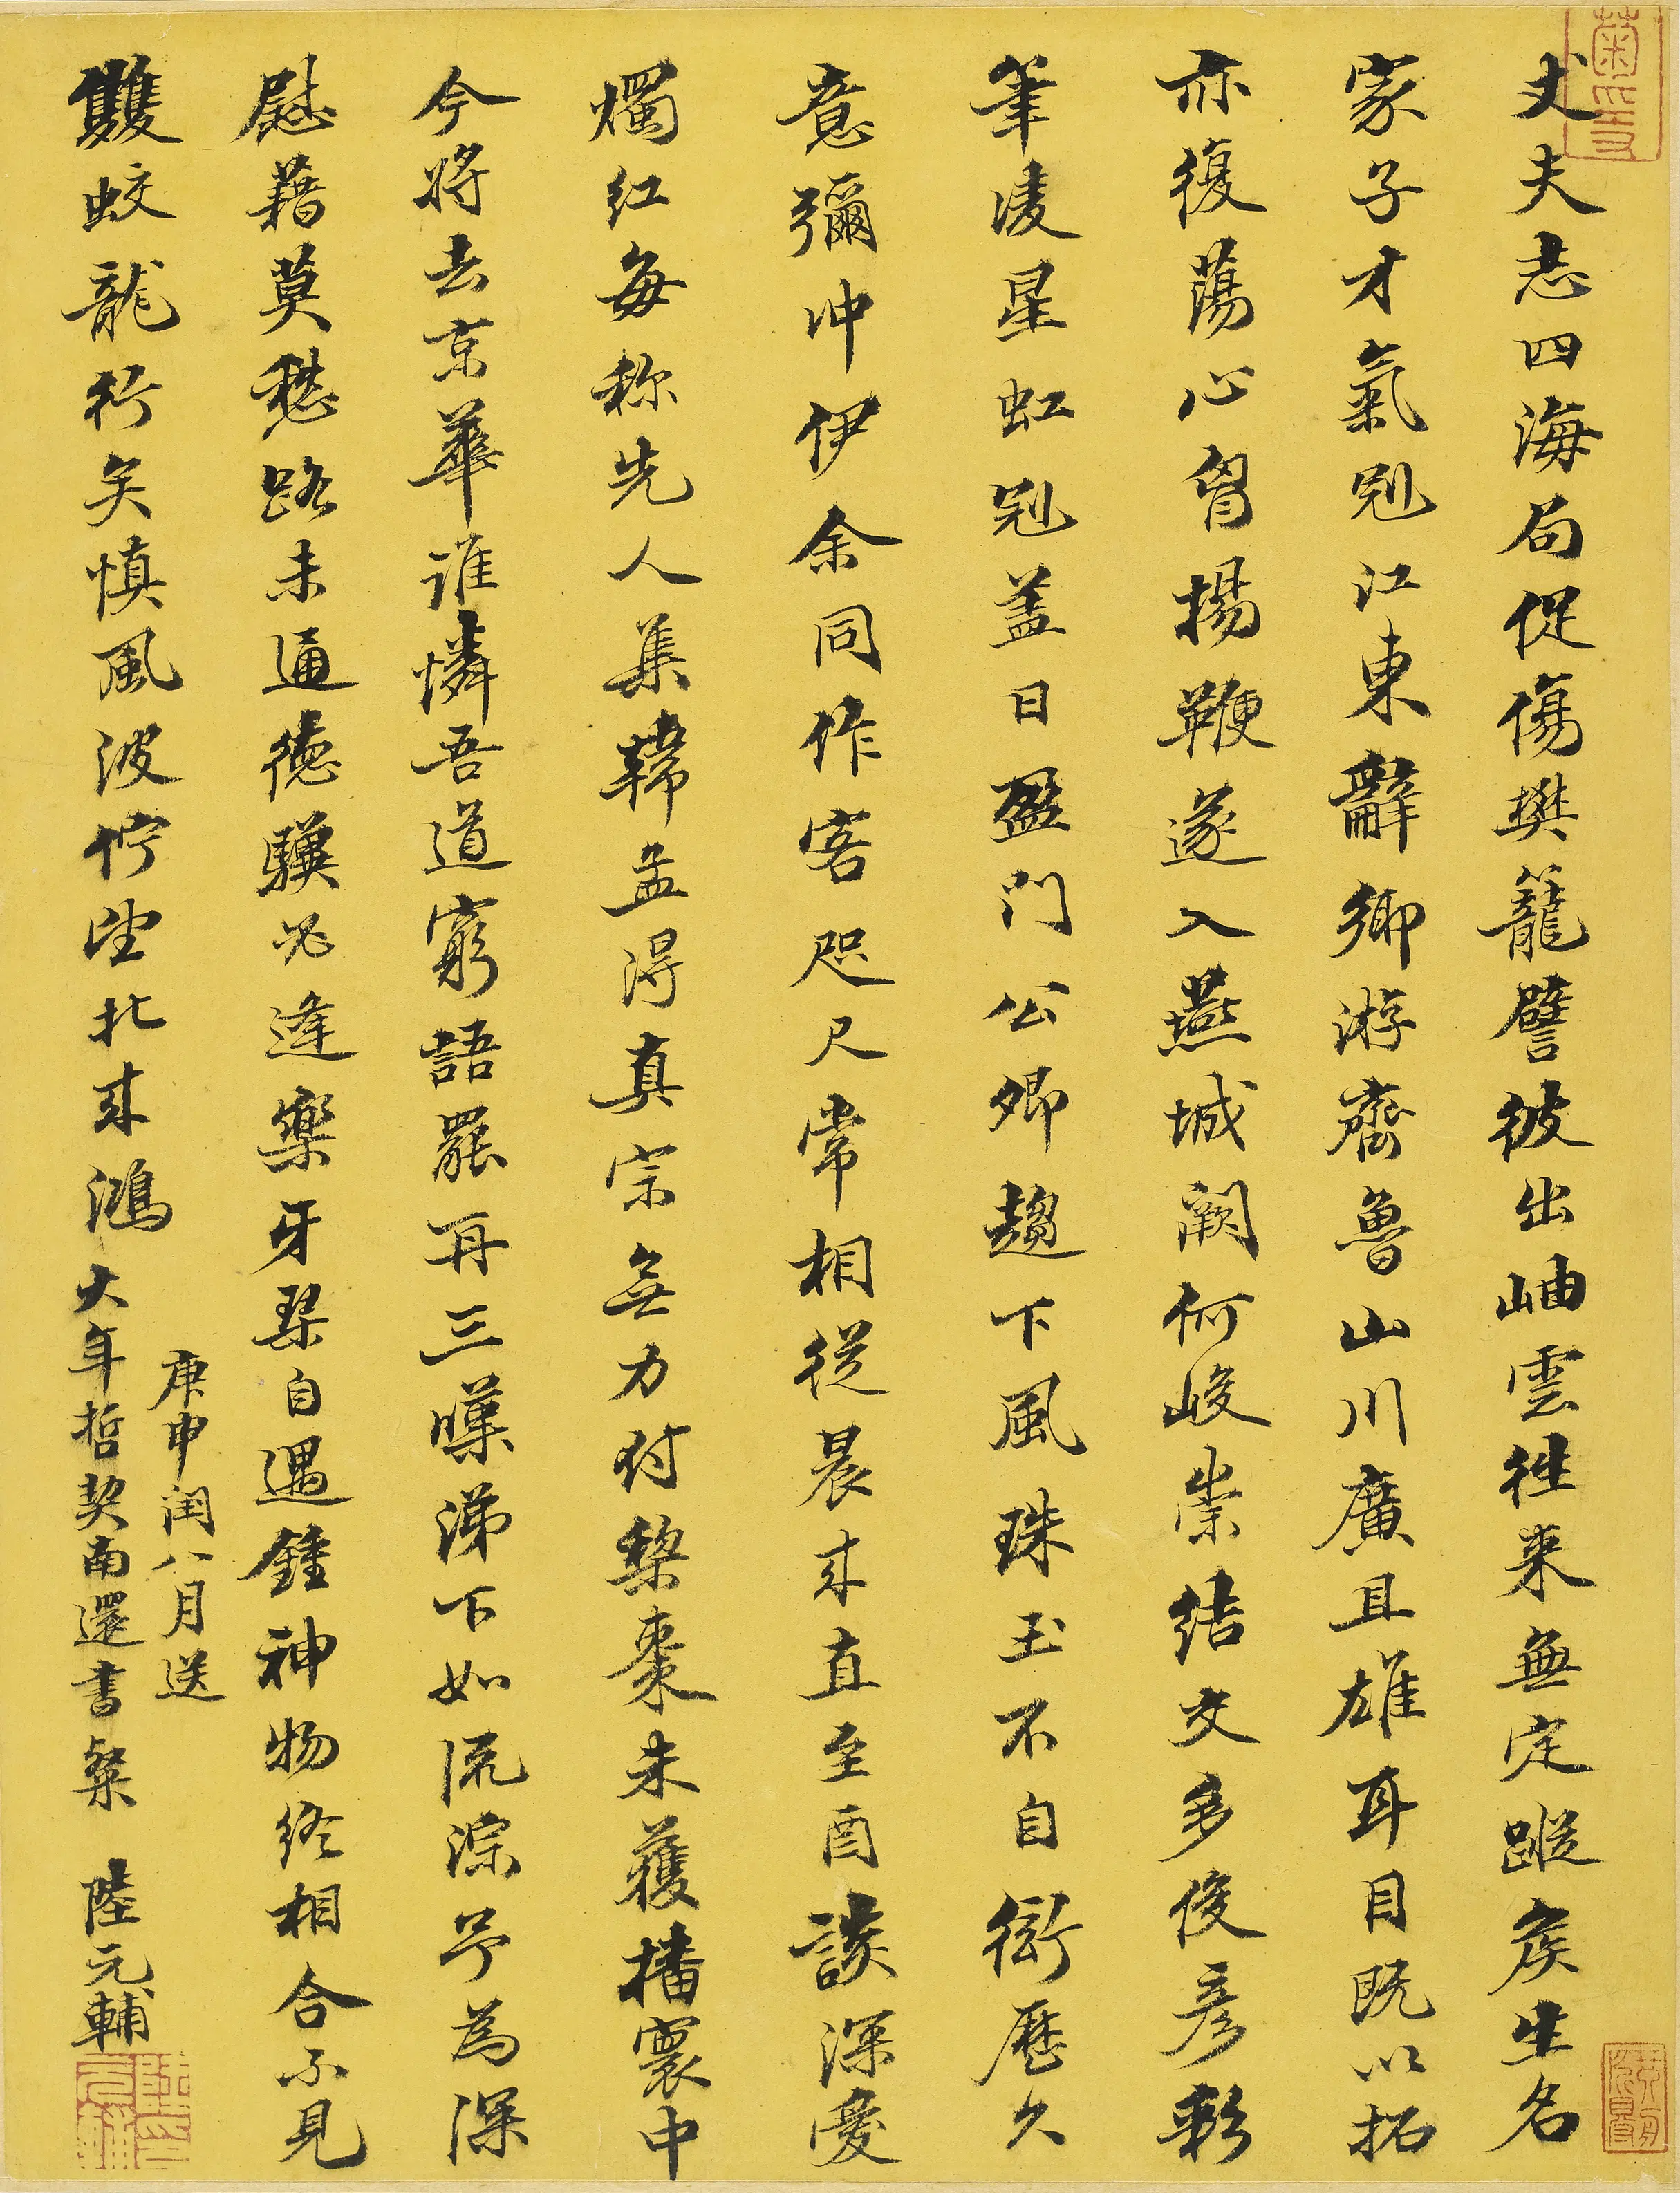 丈夫志四海局促傷樊籠譬彼出岫雲往来無定蹤矦生名
家子才氣冠江東辭鄉游齊魯山川廣且雄耳目既以拓
亦復蕩心胷揚鞭遂入燕城闕何峻崇結交多俊彥彩
筆凌星虹冠盖日盈門公卿趨下風珠玉不自衒歷久
意彌冲伊余同作客咫尺常相從晨来直至酉談深愛
燭紅每称先人集韓孟得真宗無力付梨棗未獲播寰中
今将去京華誰憐吾道窮語罷再三嘆涕下如流淙予為深
慰藉莫愁路未通德驥必逢樂牙琴自遇鍾神物终相合不見
雙蛟龍行矣慎風波佇望北来鴻
庚申闰八月送
大年哲契南還書粲 陸元輔
陸元輔印